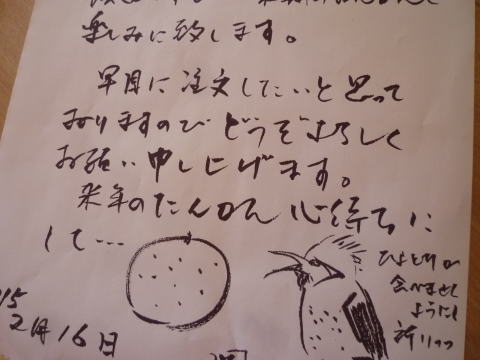 楽しみに致します。
早目に注文したいと思って
おりますのでどうぞよろしく
お願い申し上げます。
来年のたんかん心待ちに
して…
ひよどりが
食べませ
ように
祈りつつ
15
2月16日